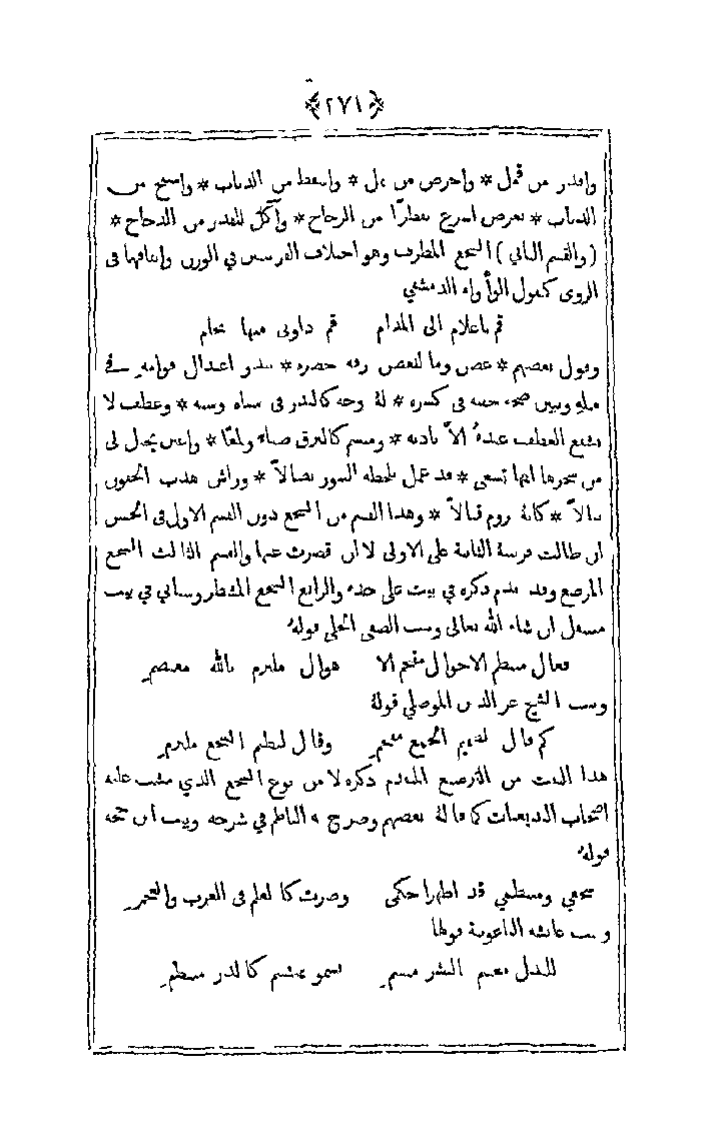 ﴿٢٧١﴾
واقدر من قمل * واحرص من نمل * واسقط من الذباب * واسبح من
الذباب * تعرض اسرع تقطرًا من الزجاج * وآكل للقدر من الدجاج *
(والقسم الثاني) السجع المطرف وهو اختلاف القرينتين في الوزن واتفاقها في
الروي كقول الوأواء الدمشقي
قم يا غلام الى المدام     قم داوني منها بجام
وقول بعضهم * غصن وما للغصن رقة خصره * يبدو اعتدال قوامه في
ميله ويبين صحة جفنه في كسره * لهُ وجه كالبدر في سناه وسنه * وعطف لا
يشفع العطف عندهُ الاَّ باذنه * ومبسم كالبرق صفاء ولمعًا * واعين يخيل لي
من سحرها انها تسعى * قد عمل لحظه السود نصالاً * وراش هدب الجفون
نبالاً * كانهُ يروم قتالاً * وهذا القسم من السجع دون القسم الاول في الحسن
ان طالت قرينة الثانية على الاولى لا ان قصرت عنها والقسم الثالث السجع
المرصع وقد تقدم ذكره في بيت على حدة والرابع السجع المشطر وسياتي في بيت
مستقل ان شاء الله تعالى وبيت الصفي الحلي قولهُ
فعال منتظم الاحوال مقتحم الا     هوال ملتزم بالله معتصم
وبيت الشيخ عز الدين الموصلي قولهُ
كم قال     الجمع     وقال لنظم السجع ملتزم
هذا البيت من الترصيع المتقدم ذكره لا من نوع السجع الذي مشت عليه
اصحاب البديعيات كما قالهُ بعضهم وصرح به الناظم في شرحه وبيت ابن حجة
قولهُ
سجعي ومنتظمي قد اظهرا حكمي     وصرت كالعلم في العرب والعجم
وبيت عائشة الباعونية قولها
للبذل مغتنم البشر مبتسم     يسمو بمبتسم كالدر منتظم